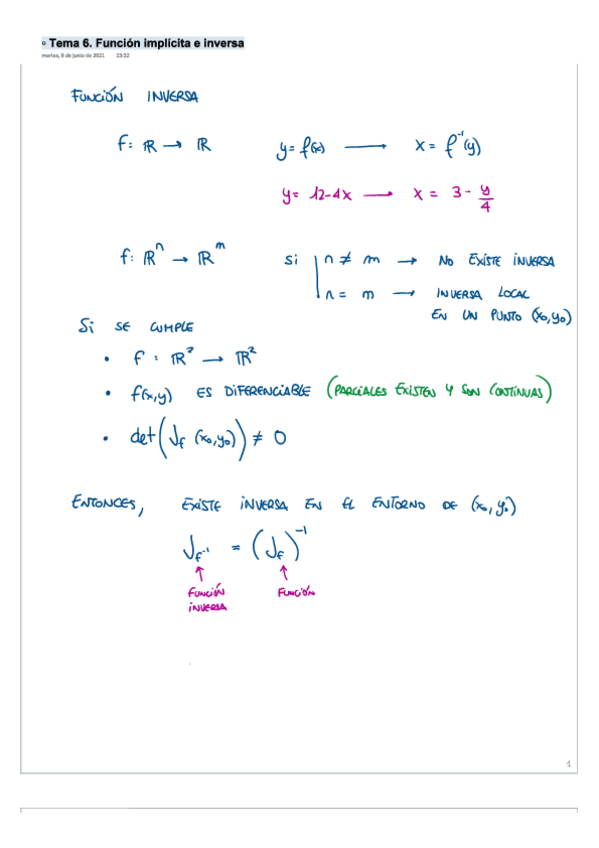 Tema 6. Función implícita e inversa
martes, 8 de junio de 2021 13:22
FUNCIÓN INVERSA
f: ℝ → ℝ y = f(x) → x = f⁻¹(y)
y = 12-4x → x = 3 - y/4
f: ℝⁿ → ℝᵐ si n ≠ m → NO EXISTE INVERSA
n = m → INVERSA LOCAL
EN UN PUNTO (x₀,y₀)
Si SE CUMPLE
• f : ℝ² → ℝ²
• f(x,y) ES DIFERENCIABLE (PARCIALES EXISTEN Y SON CONTINUAS)
• det(J_f (x₀,y₀)) ≠ 0
ENTONCES, EXISTE INVERSA EN EL ENTORNO DE (x₀, y₀)
J_f⁻¹ = (J_f)⁻¹
↑ ↑
FUNCIÓN FUNCIÓN
INVERSA
1